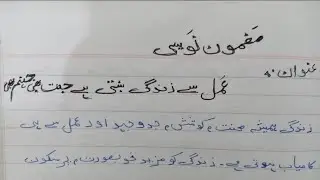 مَضمون نَویسی
عنوان:
عَمل سے زندگی بنتی ہے جنت بھی جہنم بھی
زندگی ہمیشہ محنت، کوشش، جدوجہد اور عمل سے ہی
کامیاب ہوتی ہے۔ زندگی کو مزید خوبصورت، پرسکون